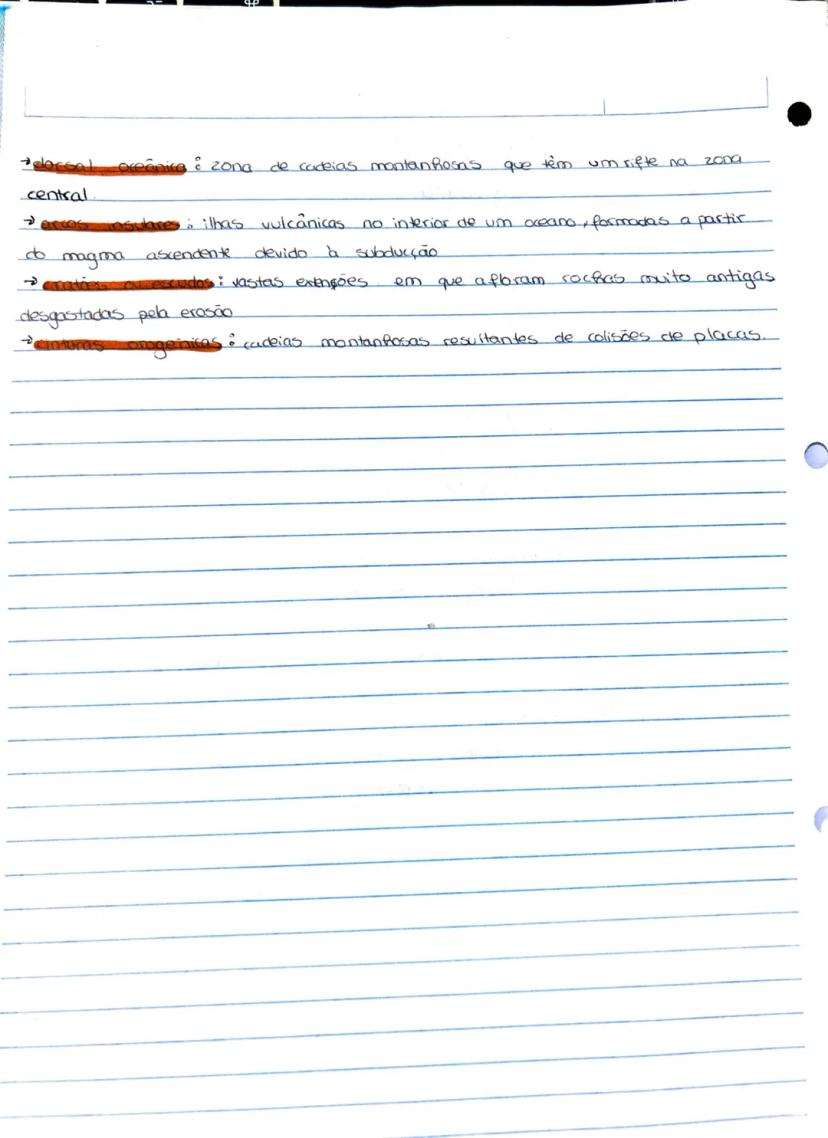 →dorsal oceânica : zona de cadeias montanhosas que têm um rifte na zona
central
→ arcos insulares : ilhas vulcânicas no interior de um oceano, formadas a partir
do magma ascendente devido à subducção
→ cratões ou escudos : vastas extenções em que afloram rochas muito antigas
desgastadas pela erosão
→cinturas orogenicas : cadeias montanhosas resultantes de colisões de placas.